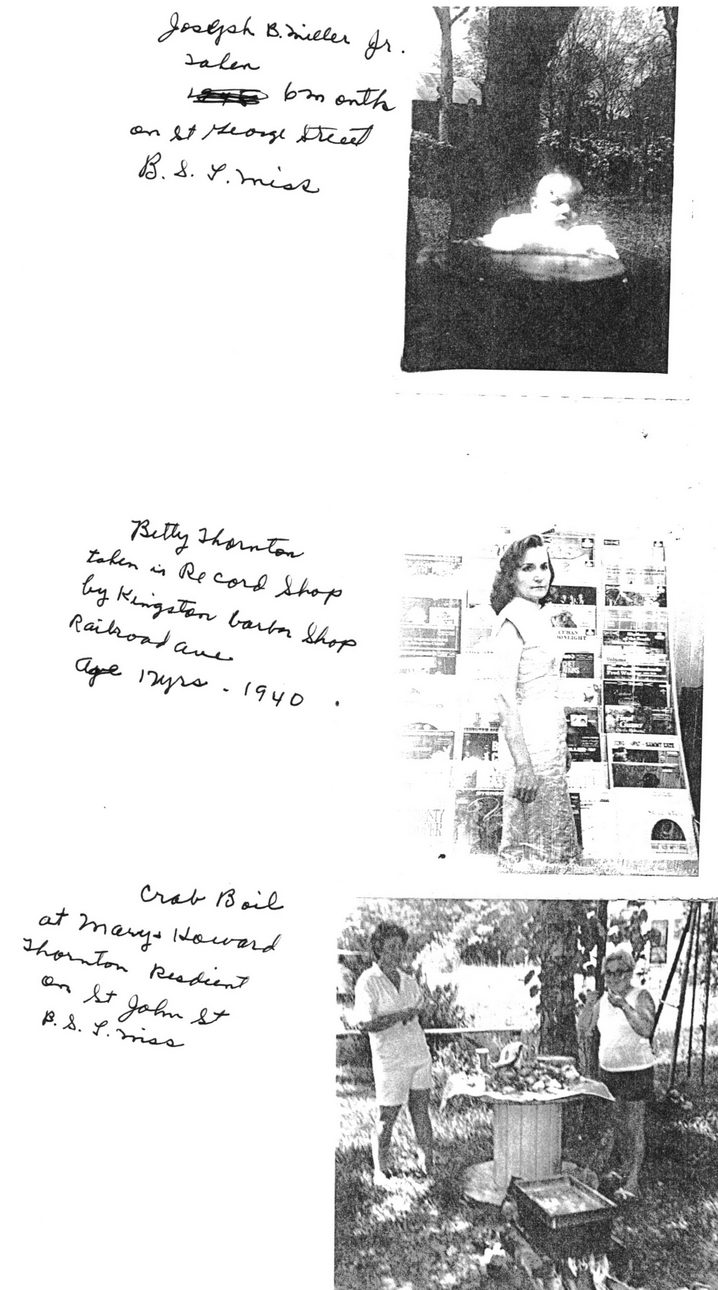 Joseph B. Miller Jr.
Taken
6 month
on St George Street
B. S. L. Miss
Betty Thornton
taken in Record Shop
by Kingston barbor Shop
Railroad ave
Age 17yrs - 1940.
Crab Boil
at Mary + Howard
Thornton Resdient
on St John St
B. S. L. Miss